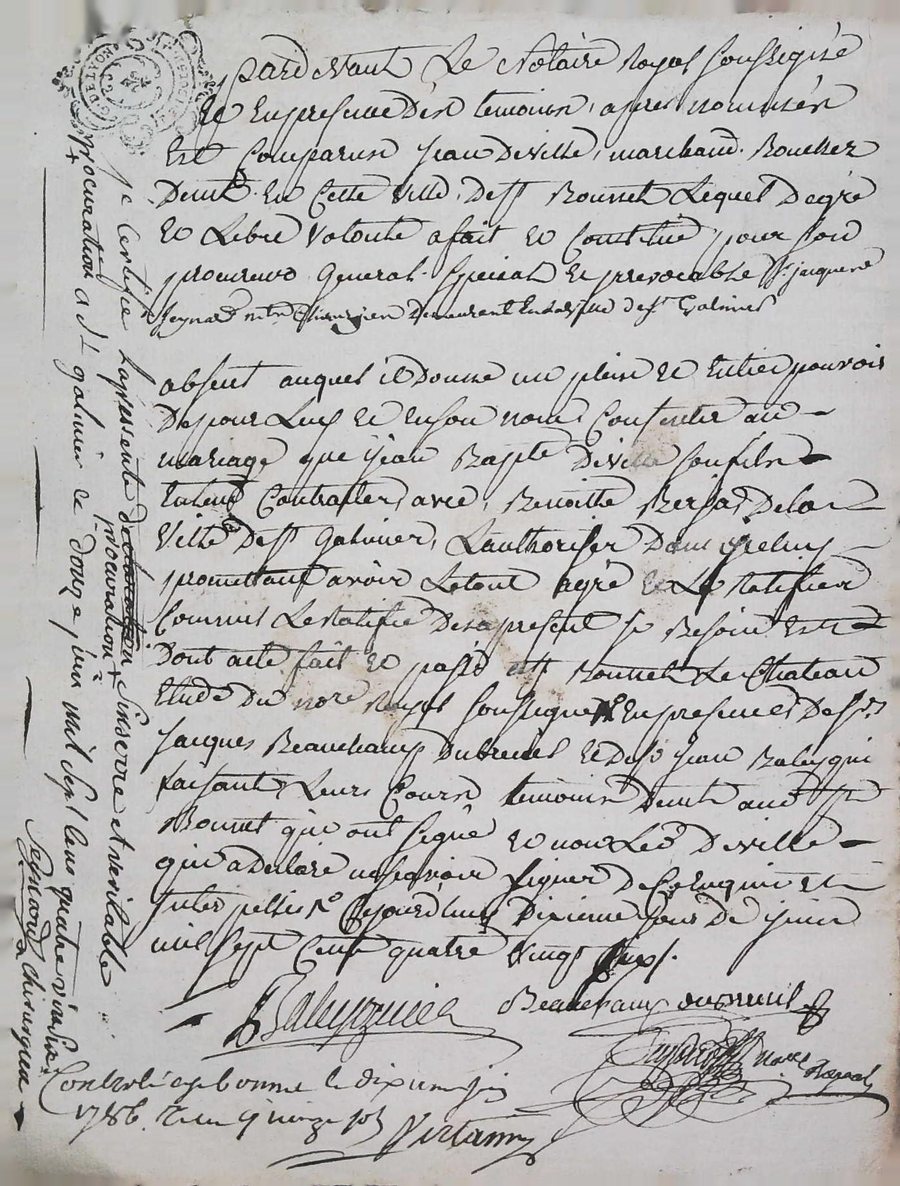 pardevant Le Notaire Royal soussigné
et En presence des temoins apres nommés
Est Comparus jean Deville, marchand Boucher
Demt En Cette Ville De st Bonnet Lequel De gré
et Libre Volonté a fait et Constitué pour son
procureur General Special et jrrevocable Sr. jacques
Seynard mtre Chirurgien Demeurent En la Ville de st Galmier
absent auquel il Donne un plein et Entier pouvoir
De pour Luy et En son nom Consentir au
mariage que jean Bapte Deville son fils
Entend Contracter, avec Benoitte Dela
Ville De st Galmier, L'authoriser Dans jceluy
promettant avoir Le tout agré et Le Ratifier
Comme Le Ratifie Des apresent si Besoin Est
Dont acte fait et passé a st Bonnet Le Chateau
Etude Du nore Royal soussigné En presence De srs
jacques Beauchamp Dubreuil et De sr jean
faisant Leurs Cours temoins Demt aud st
Bonnet qui ont signé et non Led Deville
qui a Declaré ne scavoir signer De Ce Enquis et
jnterpellé Cejourd'huy Dixieme jour De juin
mil sept Cent quatre Vingt six.
Beauchamp dubreuil
nore Royal
Controlé a st bonnet le dix juin
1786. Recu quinze sols
je Certifie La presente procuration sincerre et veritable
procuration
a st galmier le douze juin mil sept Cens quatre vingt six
Seynard chirurgien